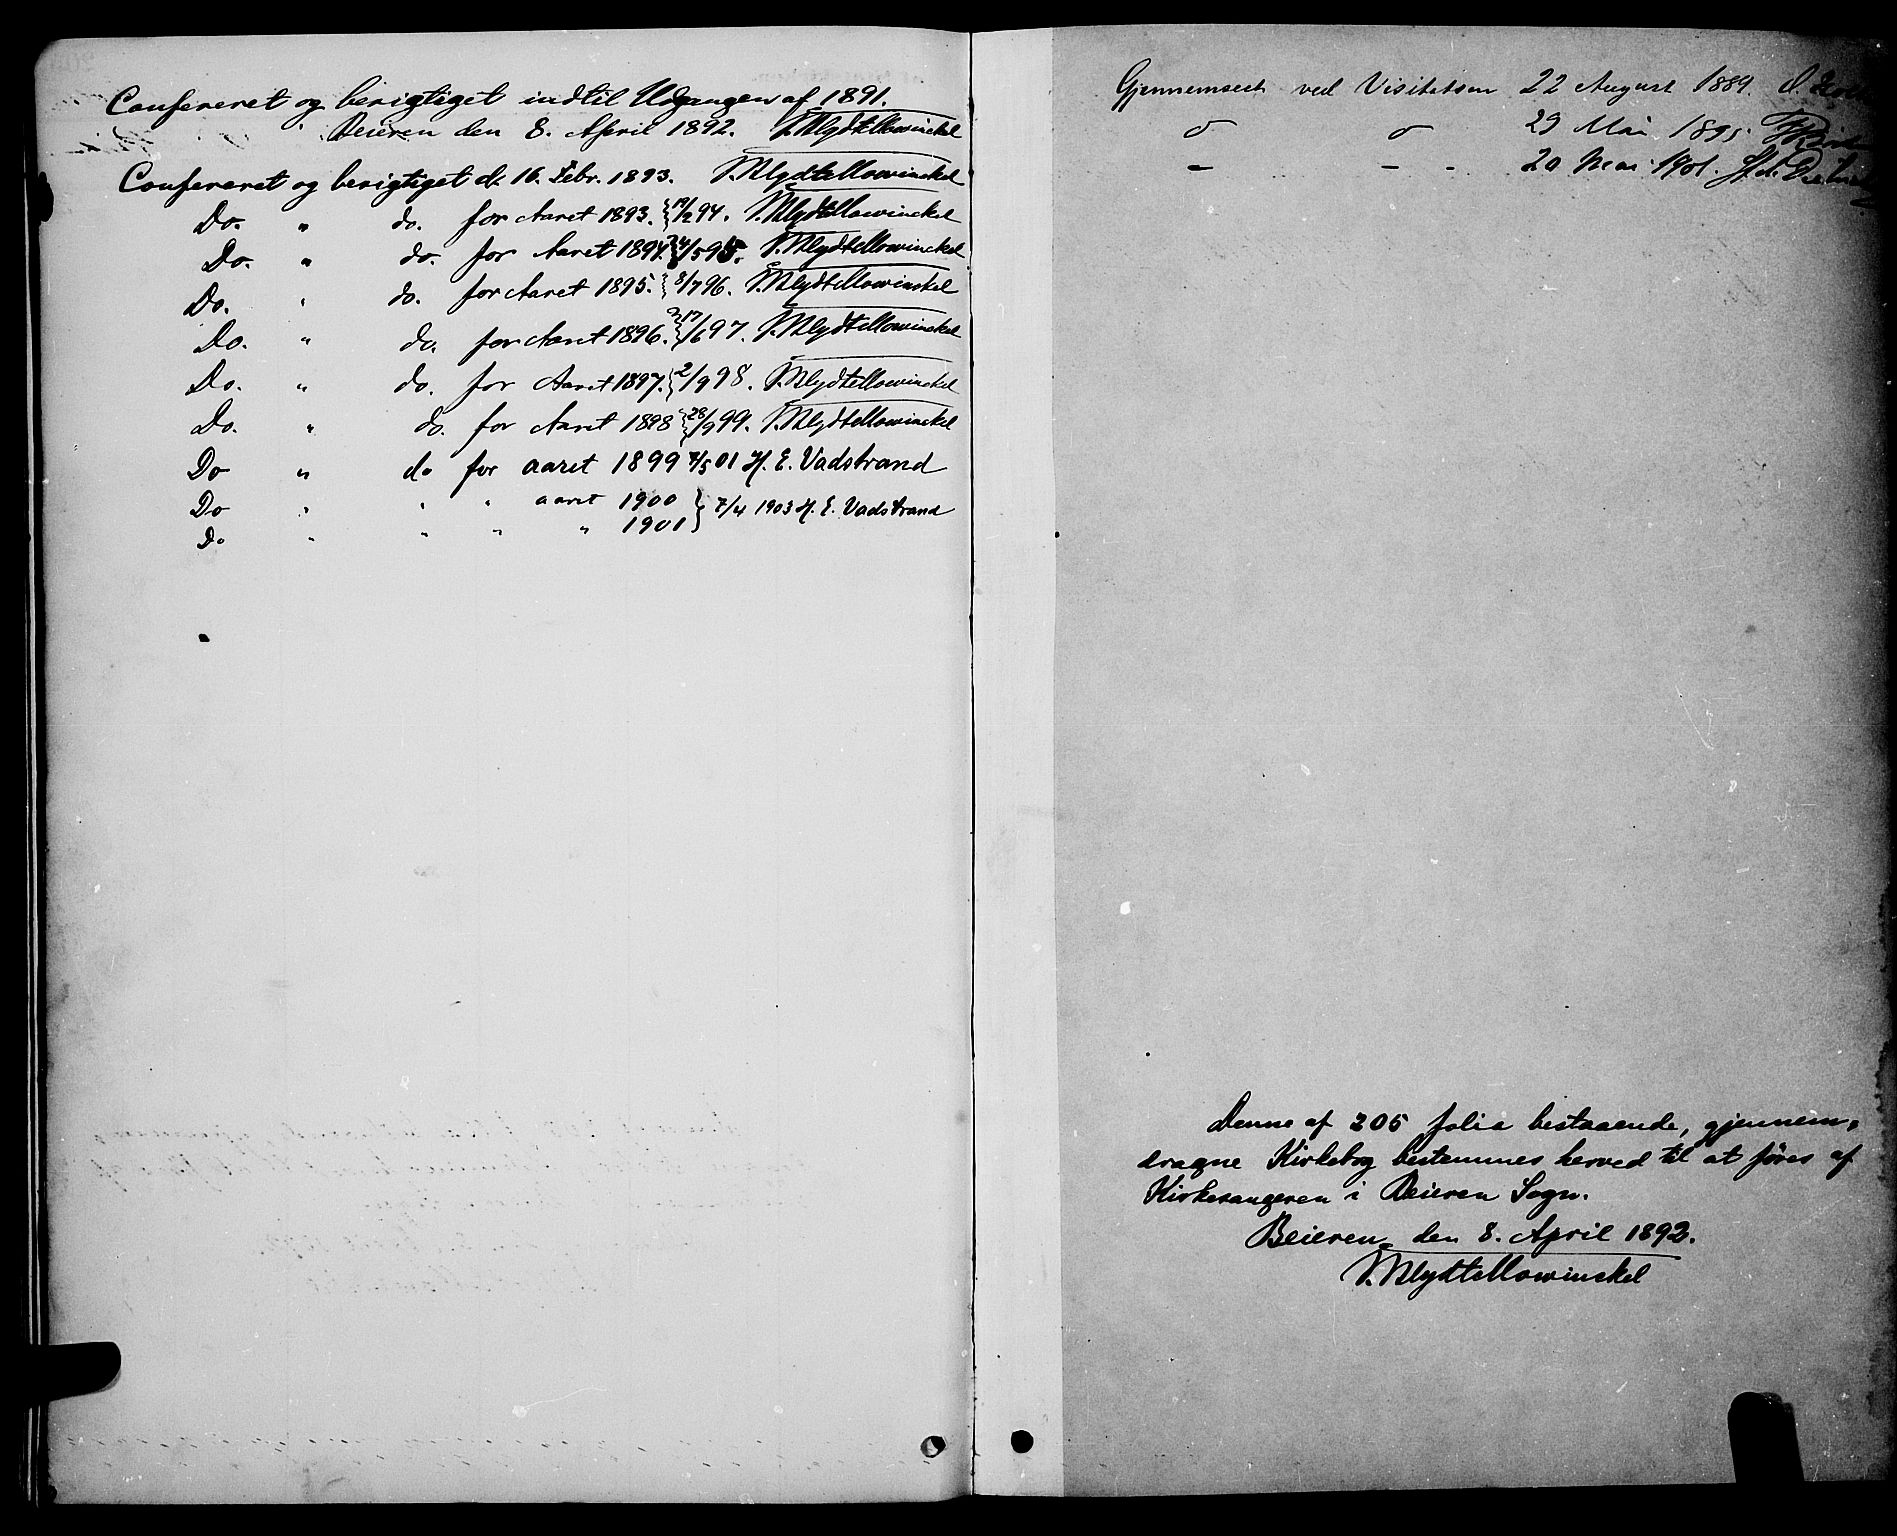 Confereret og berigtiget indtil Udgangen af 1891.
Beieren den 8. April 1892. J. Blydt Mowinckel
Confereret og berigtiget d. 16. Febr. 1893. J. Blydt Mowinckel
Do. " do. for Aaret 1893. 19/2 94. J. Blydt Mowinckel
Do. " do. for Aaret 1894. /5 95. J. Blydt Mowinckel
Do. " do. for Aaret 1895. 8/7 96. J. Blydt Mowinckel
Do. " do. for Aaret 1896. 17/6 97. J. Blydt Mowinckel
Do. " do. for Aaret 1897. 2/9 98. J. Blydt Mowinckel
Do. " do. for Aaret 1898 28/9 99. J. Blydt Mowinckel
Do " do for aaret 1899 7/5 01 H. E. Vadstrand
Do " " " aaret 1900 } 7/4 1903 H. E. Vadstrand
Do " " " " 1901
Gjennemseet ved Visitatsen 22 August 1889.
29 Mai 1895
- - - 20 Mai 1901.
Denne af 205 folia bestaaende, gjennem-
dragne Kirkebog bestemmes herved til at føres af
Kirkesangeren i Beieren Sogn.
Beieren den 8. April 1892.
J. Blydt Mowinckel